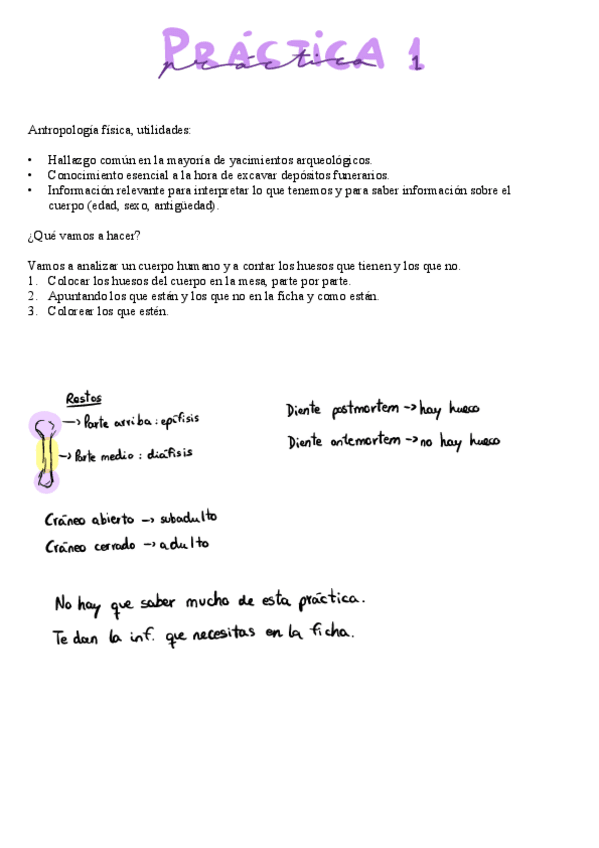 PRÁCTICA 1
práctica 1
Antropología física, utilidades:
• Hallazgo común en la mayoría de yacimientos arqueológicos.
• Conocimiento esencial a la hora de excavar depósitos funerarios.
• Información relevante para interpretar lo que tenemos y para saber información sobre el
cuerpo (edad, sexo, antigüedad).
¿Qué vamos a hacer?
Vamos a analizar un cuerpo humano y a contar los huesos que tienen y los que no.
1. Colocar los huesos del cuerpo en la mesa, parte por parte.
2. Apuntando los que están y los que no en la ficha y como están.
3. Colorear los que estén.
Restos
→ Parte arriba : epífisis
→ Parte medio : diáfisis
Diente postmortem → hay hueco
Diente antemortem → no hay hueco
Cráneo abierto → subadulto
Cráneo cerrado → adulto
No hay que saber mucho de esta práctica.
Te dan la inf. que necesitas en la ficha.